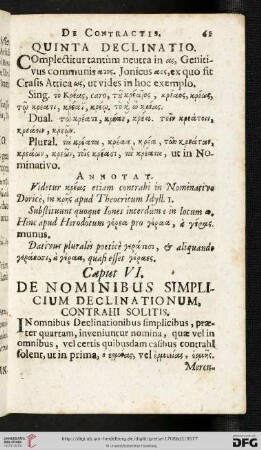 DE CONTRACTIS. 65
QUINTA DECLINATIO.
Complectitur tantùm neutra in ας, Geniti-
vus communis ατος. Jonicus αος, ex quo fit
Crasis Attica ως, ut vides in hoc exemplo.
Sing. το κρέας, caro, τῦ κρέατος, κρέαος, κρέως,
τῷ κρέατι, κρέαϊ, κρέᾳ, το κ, ὦ κρέας.
Dual. τὼ κρέατε, κρέαε, κρέα. τοῖν κρεάτοιν,
κρεάοιν, κρεῷν.
Plural. τὰ κρέατα, κρέαα, κρέα, τῶν κρεάτων,
κρεάων, κρεῶν, τοῖς κρέασι, τὰ κρέατα, ut in No-
minativo.
ANNOTAT.
Videtur κρέας etiam contrahi in Nominativo
Doricè, in κρῆς apud Theocritum Idyll. 1.
Substituunt quoque Iones interdum ε in locum α,
Hinc apud Herodotum γέρεα pro γέραα, à γέρας
munus.
Dativus pluralis poeticè γεράεσσι, & aliquando
γεράεσσι, à γέραα, quasi esset γέραες.
Caput VI.
DE NOMINIBUS SIMPLI-
CIUM DECLINATIONUM,
CONTRAHI SOLITIS.
IN omnibus Declinationibus simplicibus, præ-
ter quartam, inveniuntur nomina, quæ vel in
omnibus, vel certis quibusdam casibus contrahi
solent, ut in prima, ὁ ἑρμέας, vel ἑρμείας, ἑρμῆς.
Mercu-
http://digi.ub.uni-heidelberg.de/diglit/gretser1708bd1/0077
© Universitätsbibliothek Heidelberg
gefördert durch die
DFG